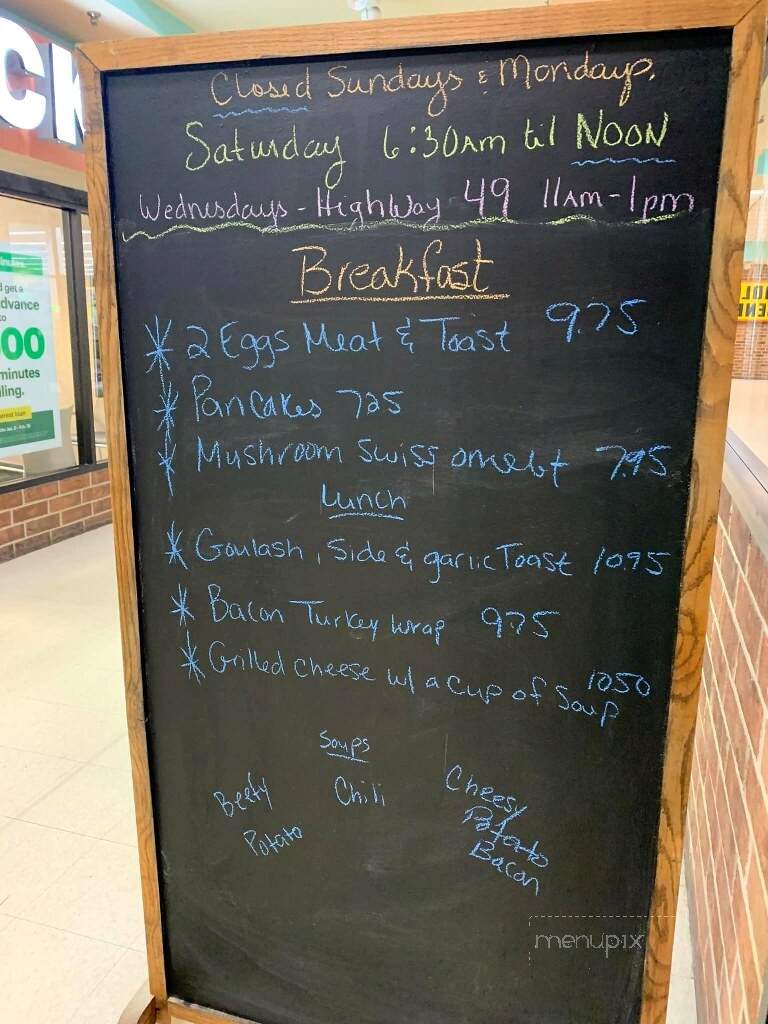 CK
Closed Sundays & Mondays.
Saturday 6:30AM til NOON
Wednesdays - HighWay 49 11AM - 1pm
Breakfast
* 2 Eggs Meat & Toast 9.75
* Pancakes 725
* Mushroom Swiss omelet 7.95
Lunch
* Goulash, Side & garlic Toast 10.95
* Bacon Turkey wrap 9.75
* Grilled cheese w/ a cup of Soup 1050
Soups
Beefy Potato
Chili
Cheesy Potato Bacon
get a
dvance
to
00
minutes
menupix